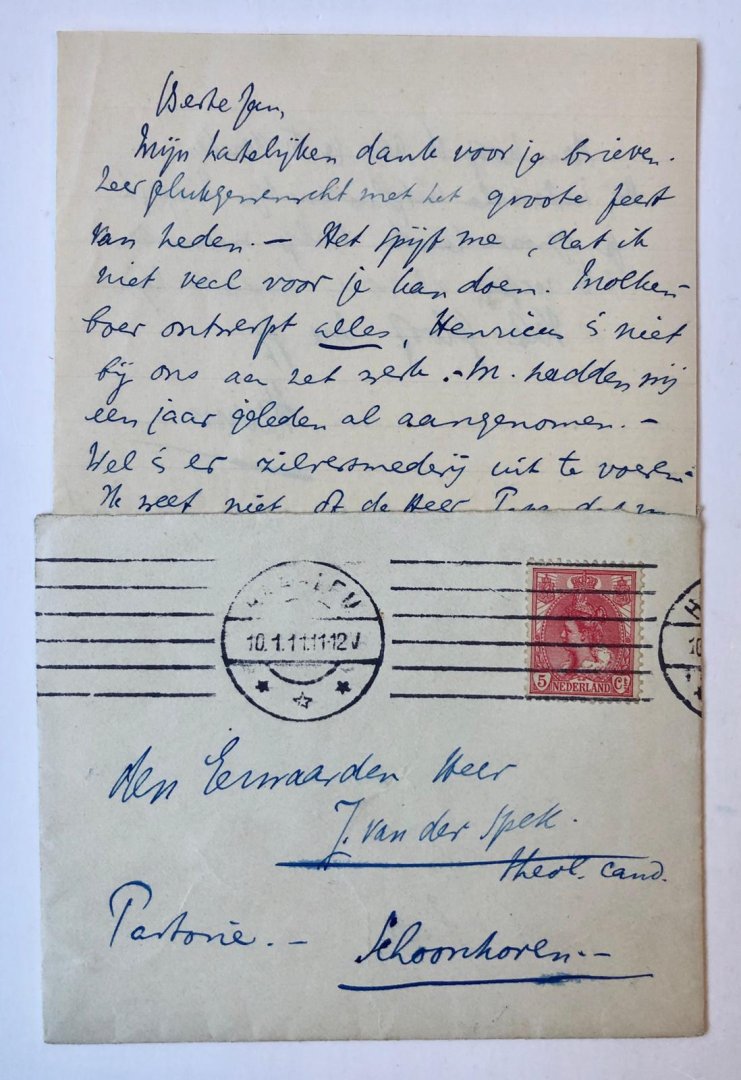 Beste Jan,
Mijn hartelijken dank voor je brieven.
Zeer gelukgewenscht met het groote feest
van heden. — Het spijt me, dat ik
niet veel voor je kan doen. Molken-
boer ontwerpt alles, Henricus is niet
bij ons aan het werk. - M. hadden wij
een jaar geleden al aangenomen. -
Wel is er zilversmederij uit te voeren.
Ik weet niet of de Heer
HAARLEM
10.1.11.11-12V
5 NEDERLAND Ct
H
10
Den Eerwaarden Heer
J. van der Spek.
theol. cand.
Pastorie. —
Schoonhoven. —